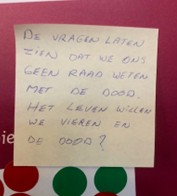 DE VRAGEN LATEN
ZIEN DAT WE ONS
GEEN RAAD WETEN
MET DE DOOD.
HET LEVEN WILLEN
WE VIEREN EN
DE DOOD?
ie